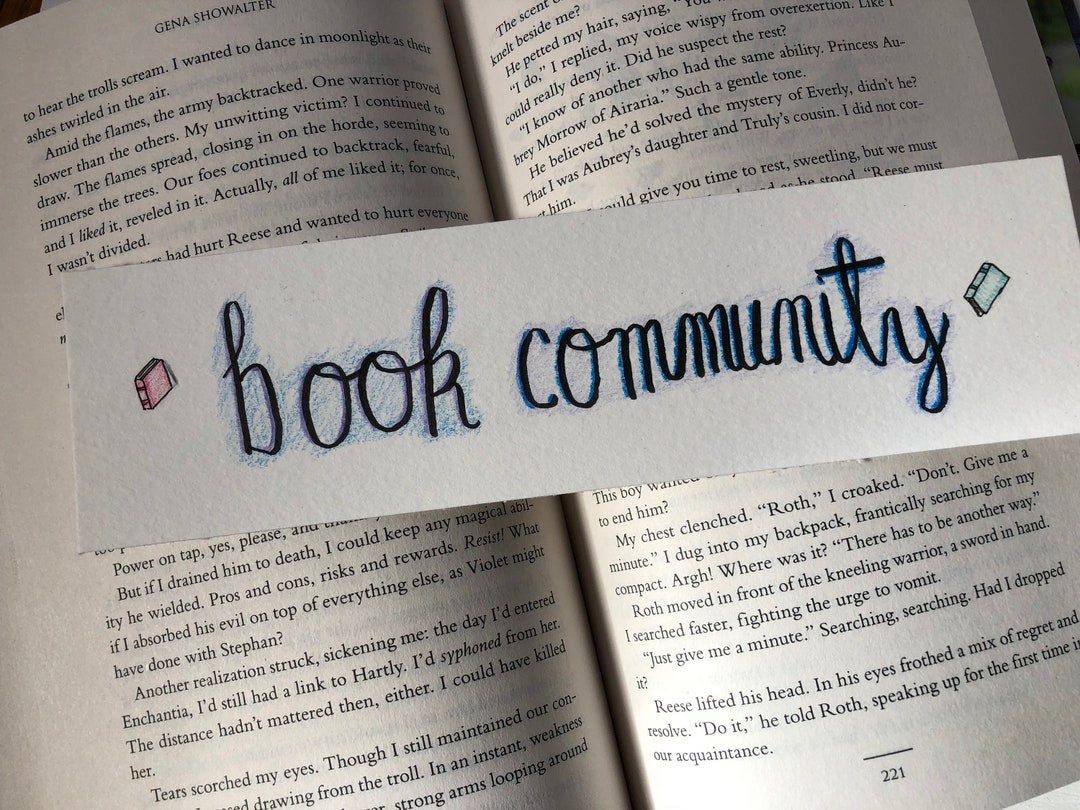 GENA SHOWALTER
to hear the trolls scream. I wanted to dance in moonlight as their
ashes twirled in the air.
Amid the flames, the army backtracked. One warrior proved
slower than the others. My unwitting victim? I continued to
draw. The flames spread, closing in on the horde, seeming to
immerse the trees. Our foes continued to backtrack, fearful,
and I liked it, reveled in it. Actually, all of me liked it; for once,
I wasn't divided.
had hurt Reese and wanted to hurt everyone
book community
Power on tap, yes, please, and
But if I drained him to death, I could keep any magical abil-
ity he wielded. Pros and cons, risks and rewards. Resist! What
if I absorbed his evil on top of everything else, as Violet might
have done with Stephan?
Another realization struck, sickening me: the day I'd entered
Enchantia, I'd still had a link to Hartly. I'd syphoned from her.
The distance hadn't mattered then, either. I could have killed
her.
Tears scorched my eyes. Though I still maintained our con-
drawing from the troll. In an instant, weakness
strong arms looping around
The scent
knelt beside me?
He petted my hair, saying, "You
"I do," I replied, my voice wispy from overexertion. Like I
could really deny it. Did he suspect the rest?
"I know of another who had the same ability. Princess Au-
brey Morrow of Airaria." Such a gentle tone.
He believed he'd solved the mystery of Everly, didn't he?
That I was Aubrey's daughter and Truly's cousin. I did not cor-
him.
give you time to rest, sweetling, but we must
as he stood. "Reese must
This boy wanted
to end him?
My chest clenched. "Roth," I croaked. "Don't. Give me a
minute." I dug into my backpack, frantically searching for my
compact. Argh! Where was it? "There has to be another way."
Roth moved in front of the kneeling warrior, a sword in hand.
I searched faster, fighting the urge to vomit.
"Just give me a minute." Searching, searching. Had I dropped
it?
Reese lifted his head. In his eyes frothed a mix of regret and
resolve. "Do it," he told Roth, speaking up for the first time in
our acquaintance.
221